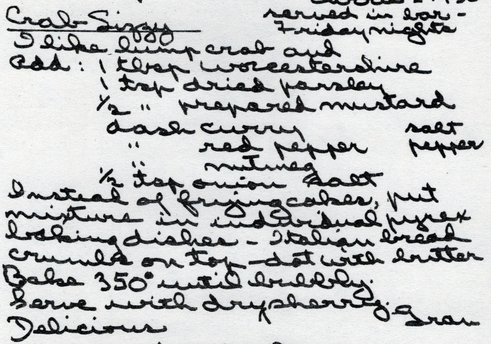 Crab Sizzy
served in bar -
Friday nights
I like lump crab and
add: 1 tbsp worcestershire
1 tsp dried parsley
1/2 " prepared mustard
dash curry salt
" red pepper pepper
" nutmeg
1/2 tsp onion salt
Instead of frying cakes, put
mixture in individual pyrex
baking dishes - Italian bread
crumbs on top - dot with butter
Bake 350° until bubbly.
Serve with dry sherry gravy
Delicious